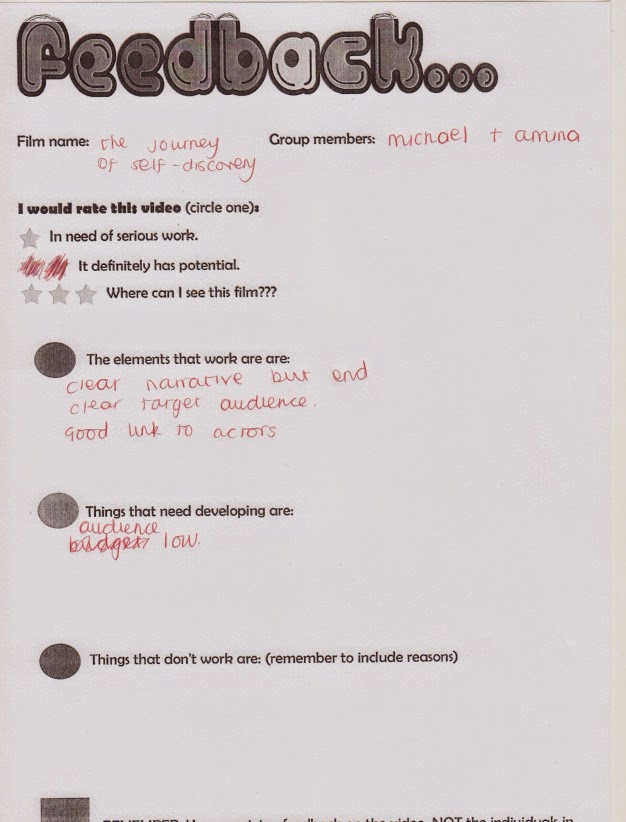 Feedback...
Film name: the journey Group members: michael + amina
of self-discovery
I would rate this video (circle one):
In need of serious work.
It definitely has potential.
Where can I see this film???
The elements that work are are:
clear narrative but end
clear target audience.
Good link to actors
Things that need developing are:
audience
budget low.
Things that don't work are: (remember to include reasons)
feedback on the video, NOT the individuals in